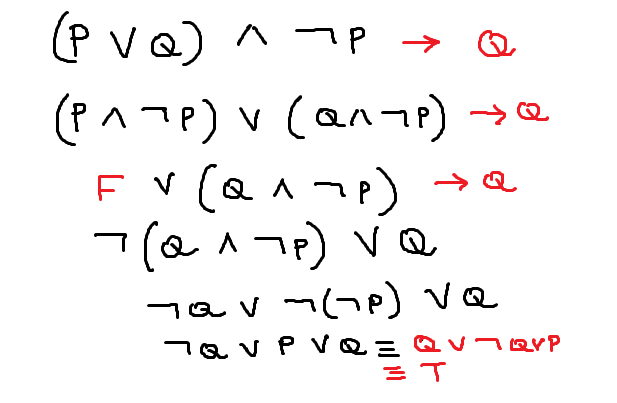 (P ∨ Q) ∧ ¬P → Q
(P ∧ ¬P) ∨ (Q ∧ ¬P) → Q
F ∨ (Q ∧ ¬P) → Q
¬(Q ∧ ¬P) ∨ Q
¬Q ∨ ¬(¬P) ∨ Q
¬Q ∨ P ∨ Q ≡ Q ∨ ¬Q ∨ P
≡ T